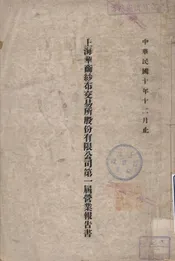 中華民國十年十二月止
上海華商紗布交易所股份有限公司第一屆營業報告書